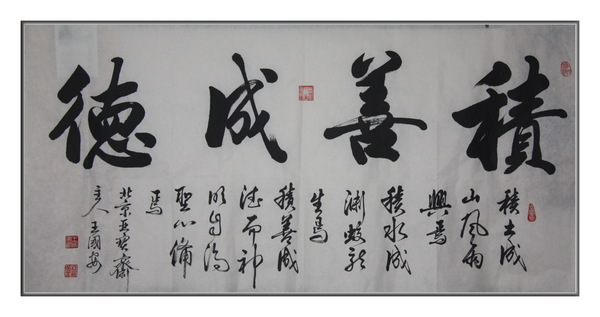 積善成德
積土成
山風雨
興焉
積水成
渊蛟龍
生焉
積善成
德而神
明自得
聖心備
焉
北京 齋
主人王國安